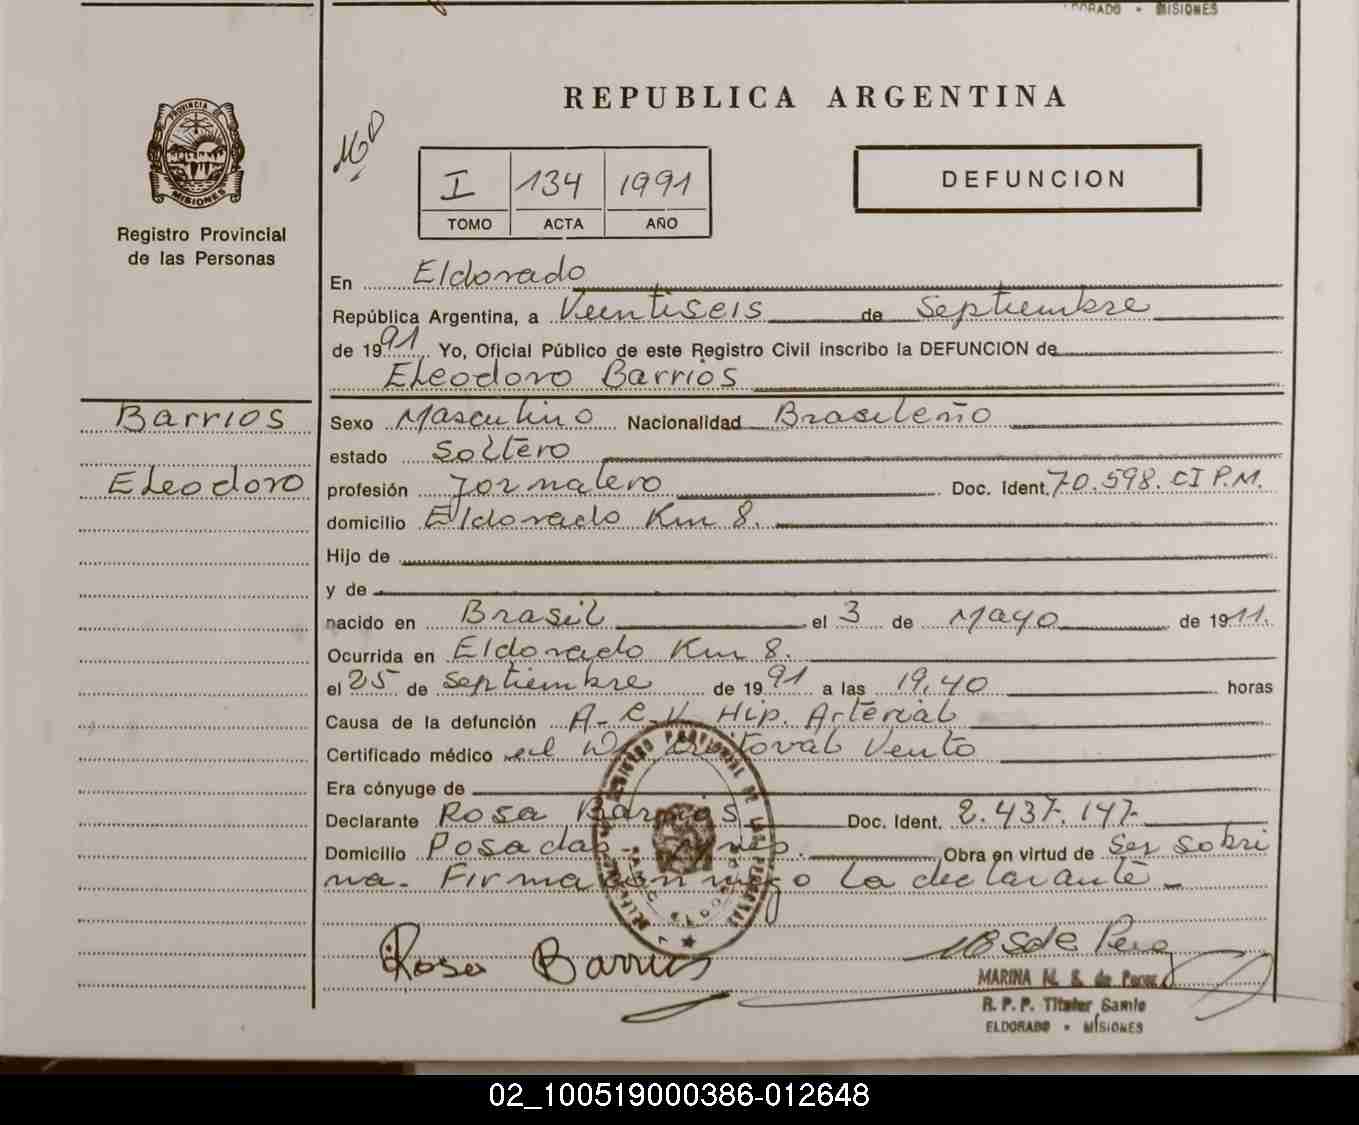 ELDORADO • MISIONES
PROVINCIA
MISIONES
Registro Provincial
de las Personas
REPUBLICA ARGENTINA
I 134 1991
TOMO ACTA AÑO
DEFUNCION
En Eldorado
República Argentina, a Veintiseis de Septiembre
de 1991. Yo, Oficial Público de este Registro Civil inscribo la DEFUNCION de
Eleodoro Barrios
Barrios
Eleodoro
Sexo Masculino Nacionalidad Brasileño
estado Soltero
profesión Jornalero Doc. Ident. 70.598. CI P.M.
domicilio Eldorado Km 8.
Hijo de
y de
nacido en Brasil el 3 de Mayo de 1911.
Ocurrida en Eldorado Km 8.
el 25 de Septiembre de 1991 a las 19,40 horas
Causa de la defunción A.C.V. Hip. Arterial
Certificado médico el Dr. Cristoval Vento
Era cónyuge de
Declarante Rosa Barrios Doc. Ident. 2.437.147-
Domicilio Posadas Mnes. Obra en virtud de Ser sobri
na. Firma conmigo la declarante
Rosa Barrios
MARINA M. S. de Perez
R. P. P. Titular Samfe
ELDORADO • MISIONES
02_100519000386-012648